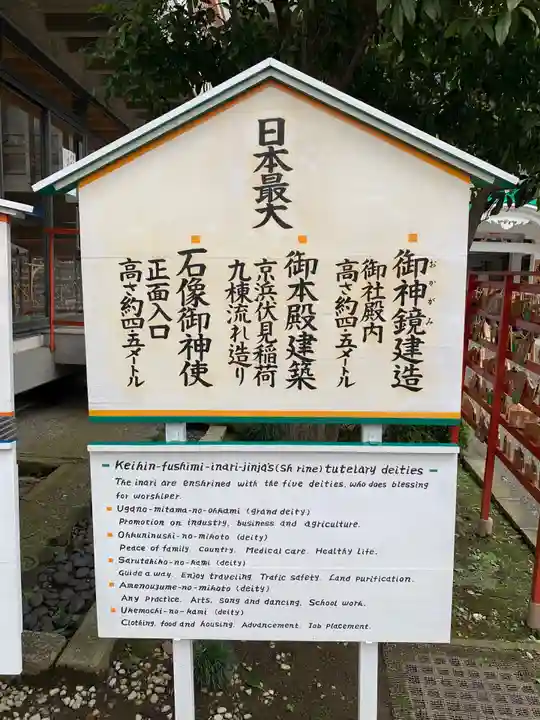 日本最大
御神鏡建造
おかがみ
御社殿内
高さ約四・五メートル
御本殿建築
京浜伏見稲荷
九棟流れ造り
石像御神使
正面入口
高さ約四・五メートル
Keihin-fushimi-inari-jinja's(sh rine)tutelary deities
The inari are enshrined with the five deities, who does blessing
for worshiper.
Ugano-mitama-no-ohkami (grand deity)
Promotion on industry, business and agriculture.
Ohkuninushi-no-mikoto (deity)
Peace of family. Country. Medical care. Healthy life.
Sarutahiko-no-kami (deity)
Guide a way. Enjoy traveling. Trafic safety. Land purification.
Amenouzume-no-mikoto (deity)
Any Practice. Arts, song and dancing. School work.
Ukemochi-no-kami (deity)
Clothing, food and housing. Advancement. Job placement.